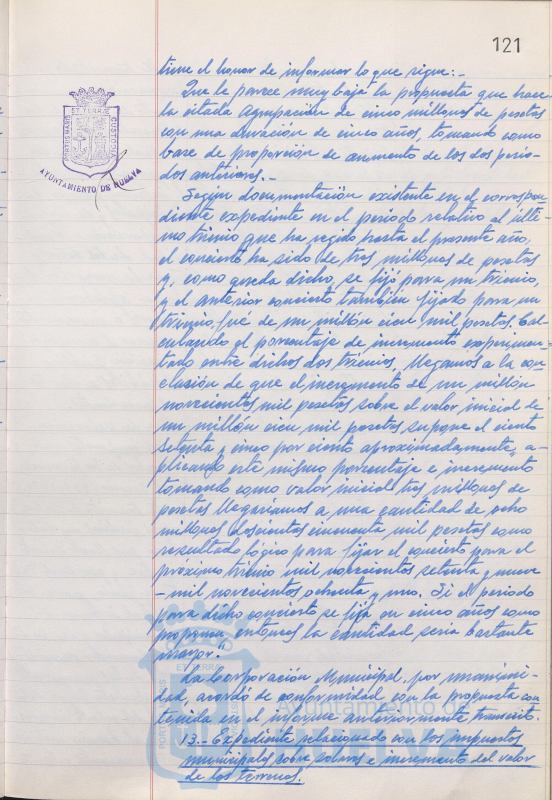 121
tiene el honor de informar lo que sigue:-
Que le parece muy baja la propuesta que hace
la citada Agrupación de cinco millones de pesetas
con una duración de cinco años tomando como
base de proporción de aumento de los dos perío-
dos anteriores.-
Según documentación existente en el correspon
diente expediente en el período relativo al últi-
mo trienio que ha regido hasta el presente año,
el concierto ha sido de tres millones de pesetas
y, como queda dicho se fijó para un trienio,
y el anterior concierto también fijado para un
trienio, fué de un millón cien mil pesetas. Cal-
culando el porcentaje de incremento experimen-
tado entre dichos dos trienios, llegamos a la con
clusión de que el incremento de un millón
novecientas mil pesetas sobre el valor inicial de
un millón cien mil pesetas supone el ciento
setenta y cinco por ciento aproximadamente, a-
plicando este mismo porcentaje e incremento
tomando como valor inicial tres millones de
pesetas llegaríamos a una cantidad de ocho
millones doscientas cincuenta mil pesetas como
resultado lógico para fijar el concierto para el
próximo trienio mil novecientos setenta y nueve
-mil novecientos ochenta y uno. Si el período
para dicho concierto se fija en cinco años como
proponen, entonces la cantidad sería bastante
mayor."
La Corporación Municipal, por unanimi-
dad, acordó de conformidad con la propuesta con
tenida en el informe anteriormente transcrito.
13.- Expediente relacionado con los impuestos
municipales sobre solares e incremento del valor
de los terrenos.
PORTUS MARIS ET TERRAE CUSTODIA
AYUNTAMIENTO DE HUELVA
ET TERRAE
PORTUS
Ayuntamiento de
HUELVA